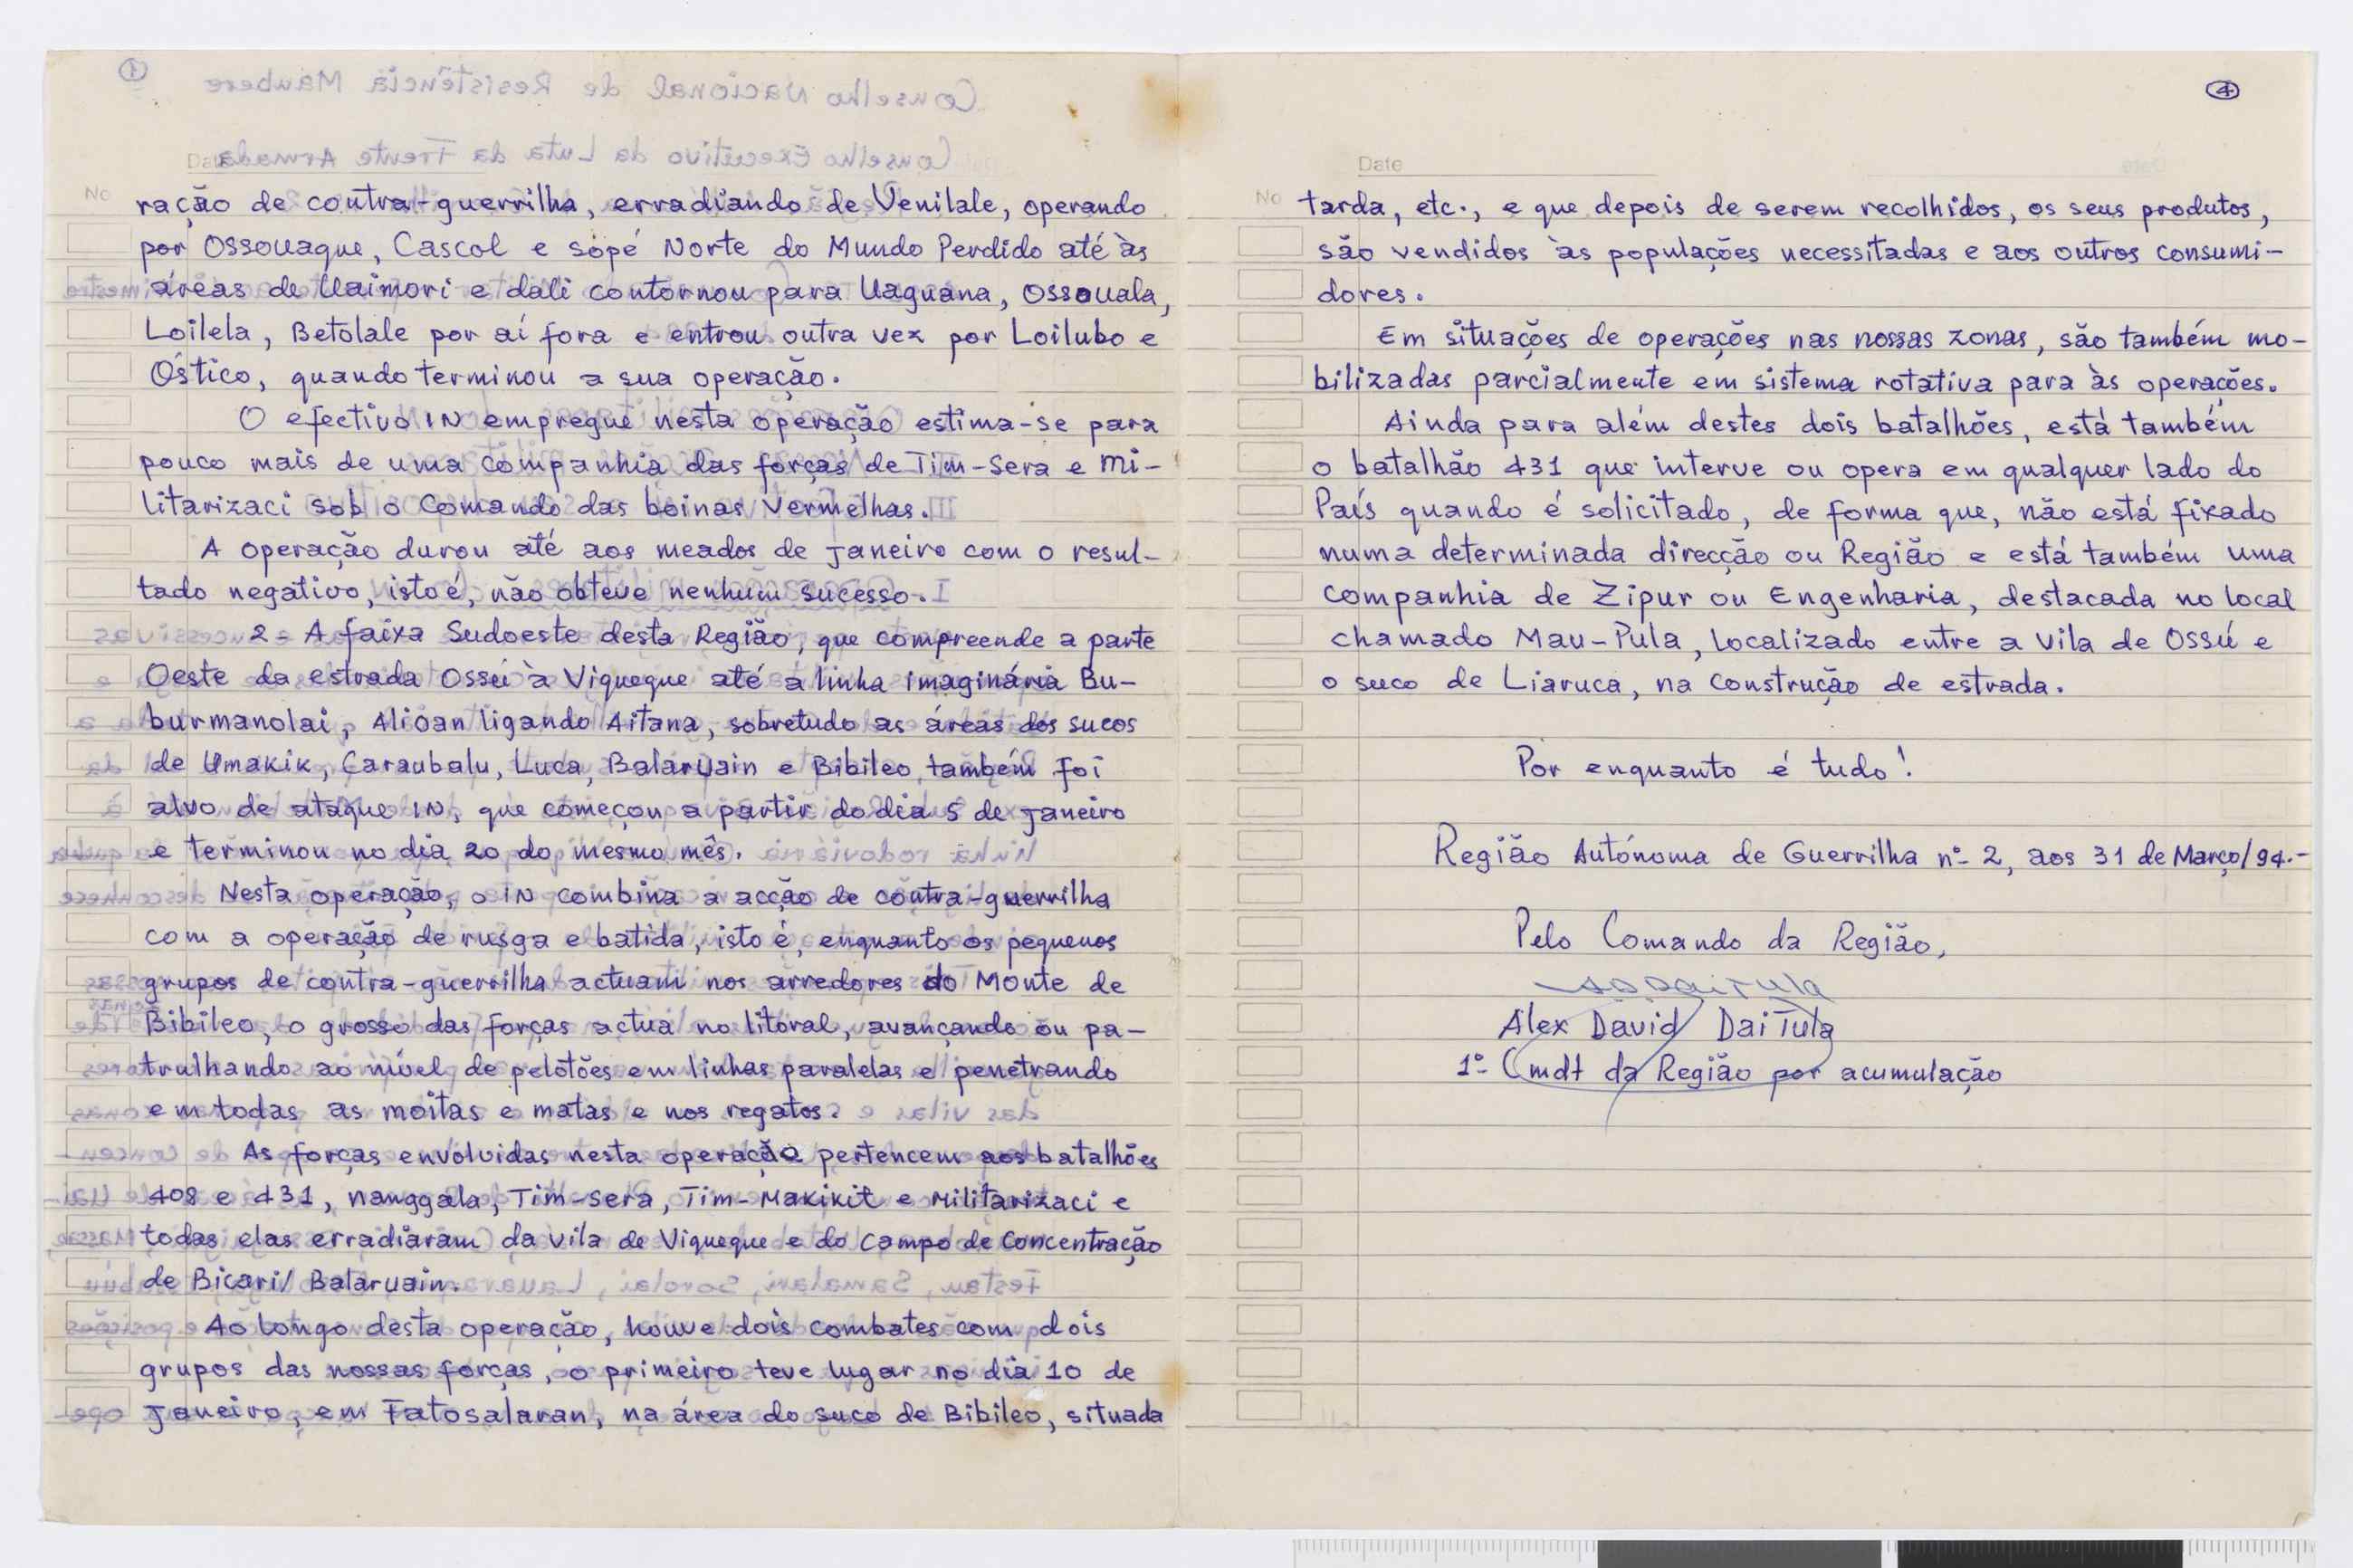 ração de contra-guerrilha, erradiando de Venilale, operando
por Ossouaque, Cascol e sopé Norte do Mundo Perdido até às
áreas de Uaimori e dali contornou para Uaguana, Ossouala,
Loilela, Betolale por aí fora e entrou outra vez por Loilubo e
Óstico, quando terminou a sua operação.
O efectivo IN empregue nesta operação estima-se para
pouco mais de uma companhia das forças de Tim-Sera e mi-
litarizaci sob o Comando das boinas Vermelhas.
A operação durou até aos meados de Janeiro com o resul-
tado negativo, isto é, não obteve nenhum sucesso.
2- A faixa Sudoeste desta Região, que compreende a parte
Oeste da estrada Ossú à Viqueque até a linha imaginária Bu-
burmanolai, Alioan ligando Aitana, sobretudo as áreas dos sucos
de Umakik, Caraubalu, Luca, Balaruain e Bibileo, também foi
alvo de ataque IN, que começou a partir do dia 5 de Janeiro
e terminou no dia 20 do mesmo mês.
Nesta operação, o IN combina a acção de contra-guerrilha
com a operação de rusga e batida, isto é, enquanto os pequenos
grupos de contra-guerrilha actuam nos arredores do Monte de
Bibileo, o grosso das forças actua no litoral, avançando ou pa-
trulhando ao nível de pelotões em linhas paralelas e penetrando
em todas as moitas e matas e nos regatos.
As forças envolvidas nesta operação pertencem aos batalhões
408 e 431, nanggala, Tim-sera, Tim-Makikit e Militarizaci e
todas elas erradiaram da vila de Viqueque e do campo de Concentração
de Bicari/ Balaruain.
Ao longo desta operação, houve dois combates com dois
grupos das nossas forças, o primeiro teve lugar no dia 10 de
Janeiro, em Fatosalaran, na área do suco de Bibileo, situada
4
Date
No
tarda, etc., e que depois de serem recolhidos, os seus produtos,
são vendidos às populações necessitadas e aos outros consumi-
dores.
Em situações de operações nas nossas zonas, são também mo-
bilizadas parcialmente em sistema rotativa para às operações.
Ainda para além destes dois batalhões, está também
o batalhão 431 que interve ou opera em qualquer lado do
País quando é solicitado, de forma que, não está fixado
numa determinada direcção ou Região e está também uma
companhia de Zipur ou Engenharia, destacada no local
chamado Mau-Pula, localizado entre a Vila de Ossú e
o suco de Liaruca, na construção de estrada.
Por enquanto é tudo!
Região Autónoma de Guerrilha nº 2, aos 31 de Março/94.-
Pelo Comando da Região,
Alex David DaiTula
1º Cmdt da Região por acumulação